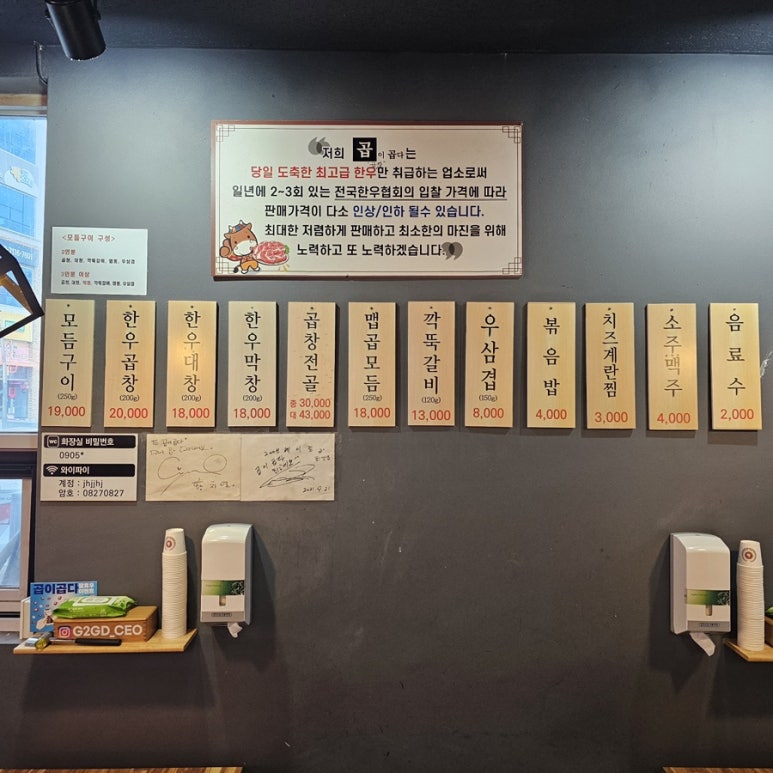 저희 곱이 곱다는
당일 도축한 최고급 한우만 취급하는 업소로써
일년에 2~3회 있는 전국한우협회의 입찰 가격에 따라
판매가격이 다소 인상/인하 될수 있습니다.
최대한 저렴하게 판매하고 최소한의 마진을 위해
노력하고 또 노력하겠습니다.
<모듬구이 구성>
2인분
3인분 이상
모듬구이
(250g)
19,000
한우곱창
(200g)
20,000
한우대창
(200g)
18,000
한우막창
(200g)
18,000
곱창전골
중 30,000
대 43,000
맵곱모듬
(250g)
18,000
깍뚝갈비
(120g)
13,000
우삼겹
(150g)
8,000
볶음밥
4,000
치즈계란찜
3,000
소주맥주
4,000
음료수
2,000
WC 화장실 비밀번호
0905*
와이파이
계정 : jhjjhj
암호 : 08270827
2021.4.21
곱이곱다
G2GD_CEO